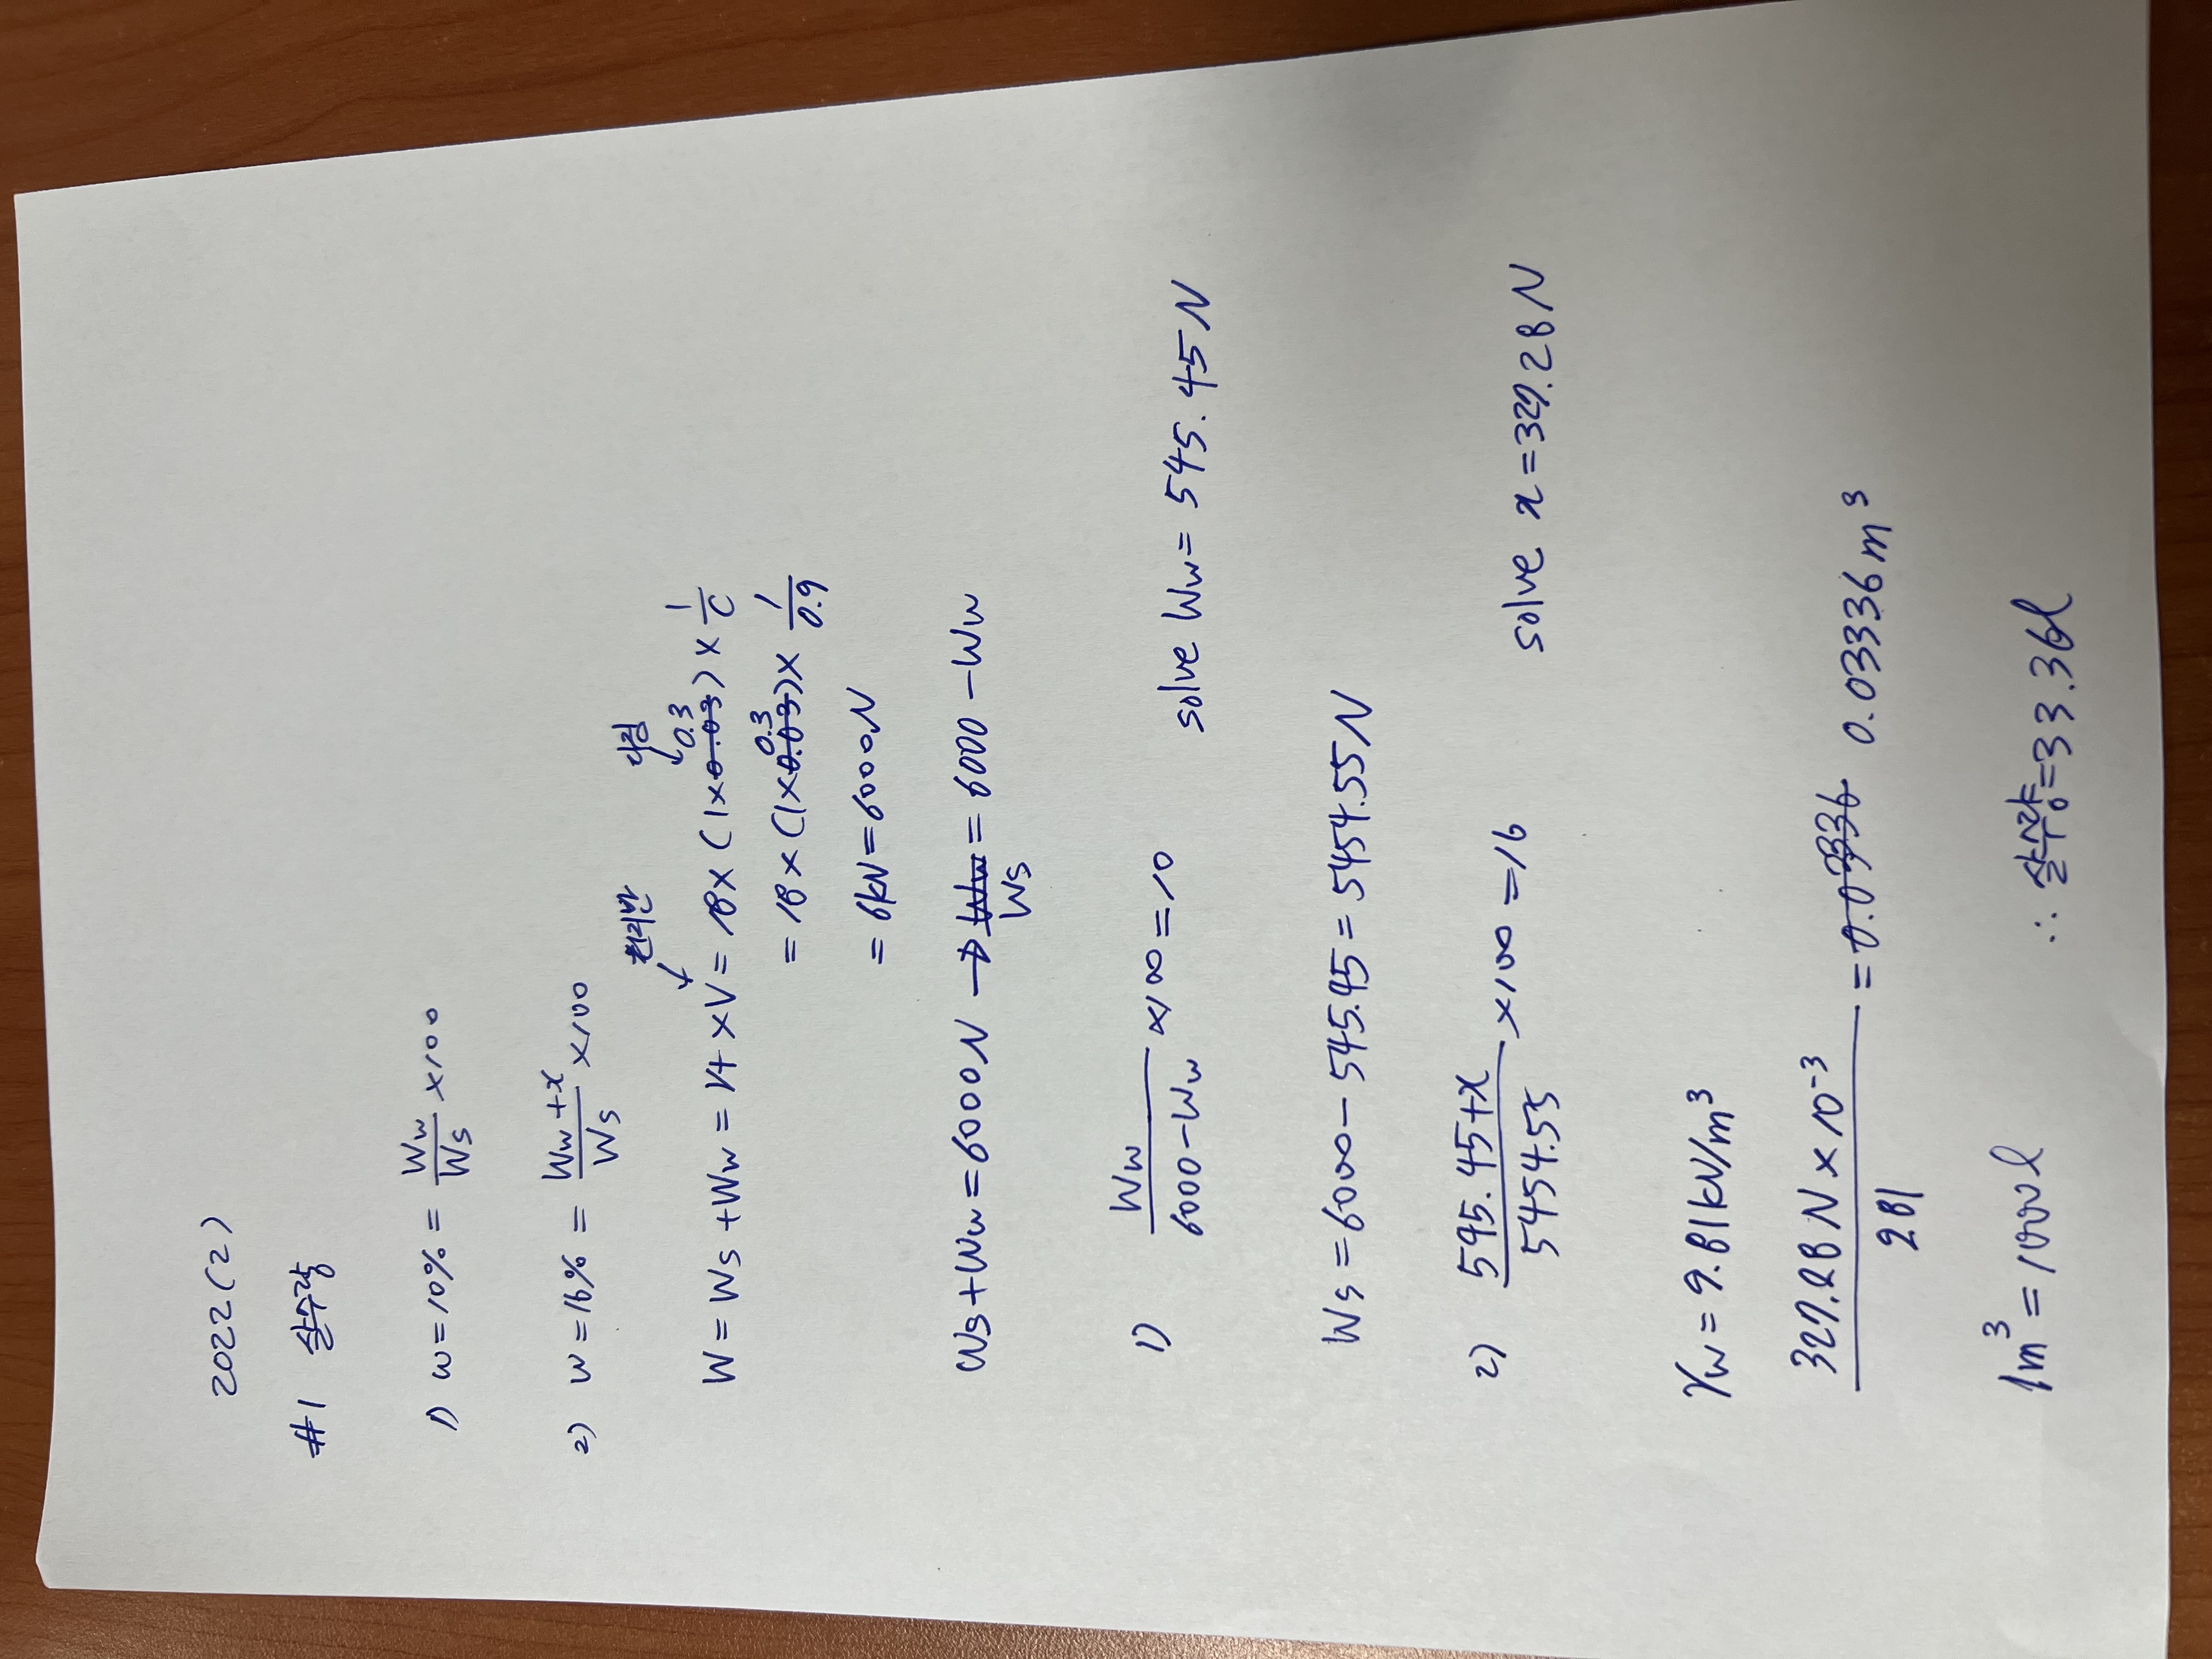 2022(2)
#1 살수량
1) w=10% = Ww/Ws ×100
2) w=16% = Ww+x/Ws ×100
다짐
W = Ws+Ww = γt×V = 18×(1×0.03 0.3)×1/C
= 18×(1×0.03 0.3)×1/0.9
= 6kN=6000N
Ws+Ww=6000N → Ww Ws = 6000-Ww
1) Ww/6000-Ww ×100=10 solve Ww=545.45N
Ws=6000-545.45=5454.55N
2) 545.45+x/5454.55 ×100=16 solve x=327.28N
γw=9.81kN/m³
327.28N×10⁻³/981 = 0.0336 0.03336m³
1m³=1000l ∴ 살수량=33.36l